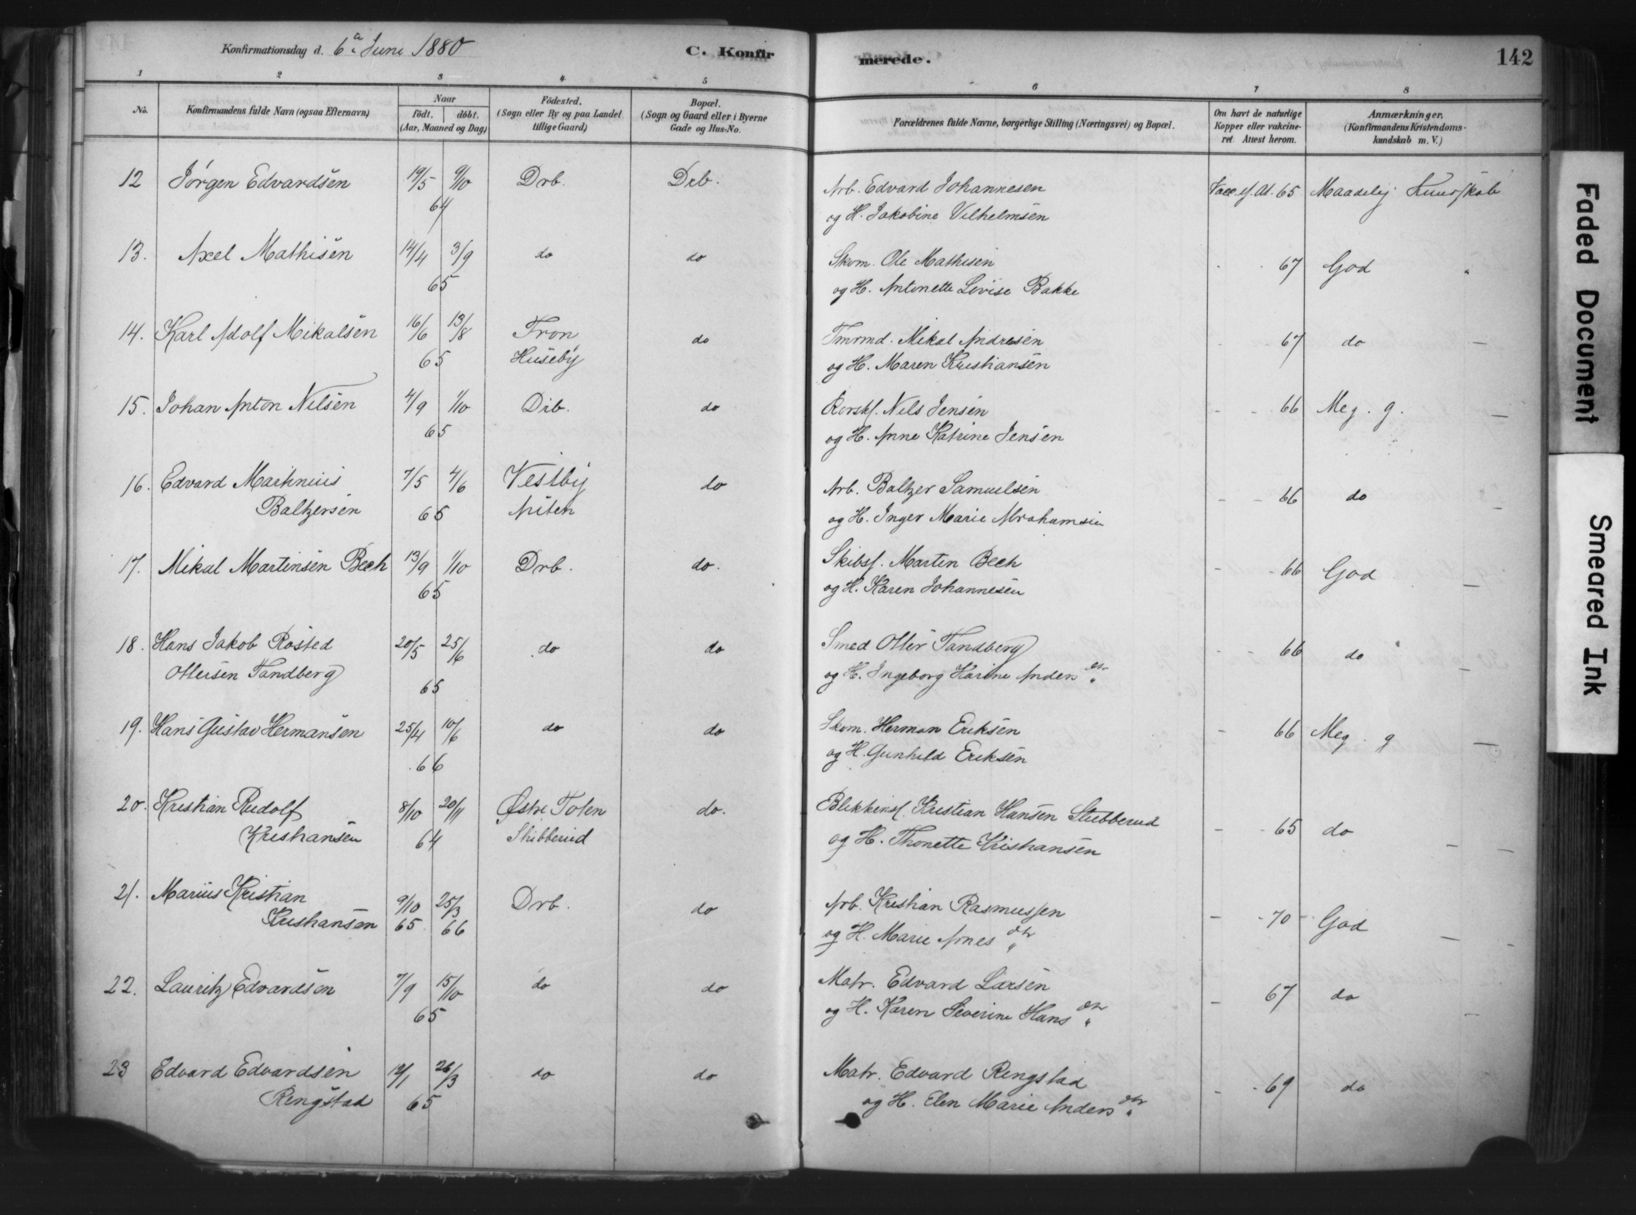 Konfirmationsdag d. 6a Juni 1880
C. Konfirmerede.
142
1 2 3 4 5 6 7 8
No.
Konfirmandens fulde Navn (ogsaa Efternavn)
Naar født. døbt. (Aar, Maaned og Dag)
Fødested. (Sogn eller By og paa Landet tillige Gaard)
Bopæl. (Sogn og Gaard eller i Byerne Gade og Hus-No.
Forældrenes fulde Navne, borgerlige Stilling (Næringsvei) og Bopæl.
Om havt de naturlige Kopper eller vakcineret. Attest herom.
Anmærkninger. (Konfirmandens Kristendomskundskab m. V.)
12 Jörgen Edvardsen 19/5 9/10 Drb. Drb. Arb. Edvard Johannesen 65 Maadelig Kundskab
64 og H. Jakobine Vilhelmsen
13. Axel Mathisen 14/4 3/9 do do Skom. Ole Mathisen 67 God
65 og H. Antonette Lovise Bakke
14. Karl Adolf Mikalsen 16/6 13/8 Tron do Tmrmd. Mikal Andresen 67 do
65 Huseby og H. Maren Kristiansen
15. Johan Anton Nilsen 4/9 1/10 Drb. do Nils Jensen 66 Meg. g.
65 og H. Anne Katrine Jensen
16. Edvard Martinius 7/5 4/6 Vestby do Arb. Baltzer Samuelsen 66 do
Baltzersen 65 og H. Inger Marie Abrahamsen
17. Mikal Martinsen Bech 13/9 1/10 Drb. do. Skibsf. Martin Bech 66 God
65 og H. Karen Johannesen
18. Hans Jakob Rosted 20/5 25/6 do do Smed Otter Tandberg 66 do
Ottersen Tandberg 65 og H. Ingeborg Karine Anders
19. Hans Gustav Hermansen 25/4 10/6 do do Skom. Herman Eriksen 66 Meg. g
66 og H. Gunhild Eriksen
20. Kristian Rudolf 8/10 20/11 Østre Toten do. Blikkensl. Kristian Hansen Stubberud 65 do
Kristiansen 64 Stubberud og H. Thonette Kristiansen
21. Marius Kristian 9/10 25/3 Drb. do Arb. Kristian Rasmussen 70 God
Kristiansen 65 66 og H. Marie Arnes dtr
22. Lauritz Edvardsen 7/9 15/10 do do Matr. Edvard Larsen 67 do
65 og H. Karen Severine Hans dtr
23 Edvard Edvardsen 26/3 do do Matr. Edvard Ringstad 69 do
Ringstad 65 og H. Elen Marie Anders dtr
Faded Document
Smeared Ink